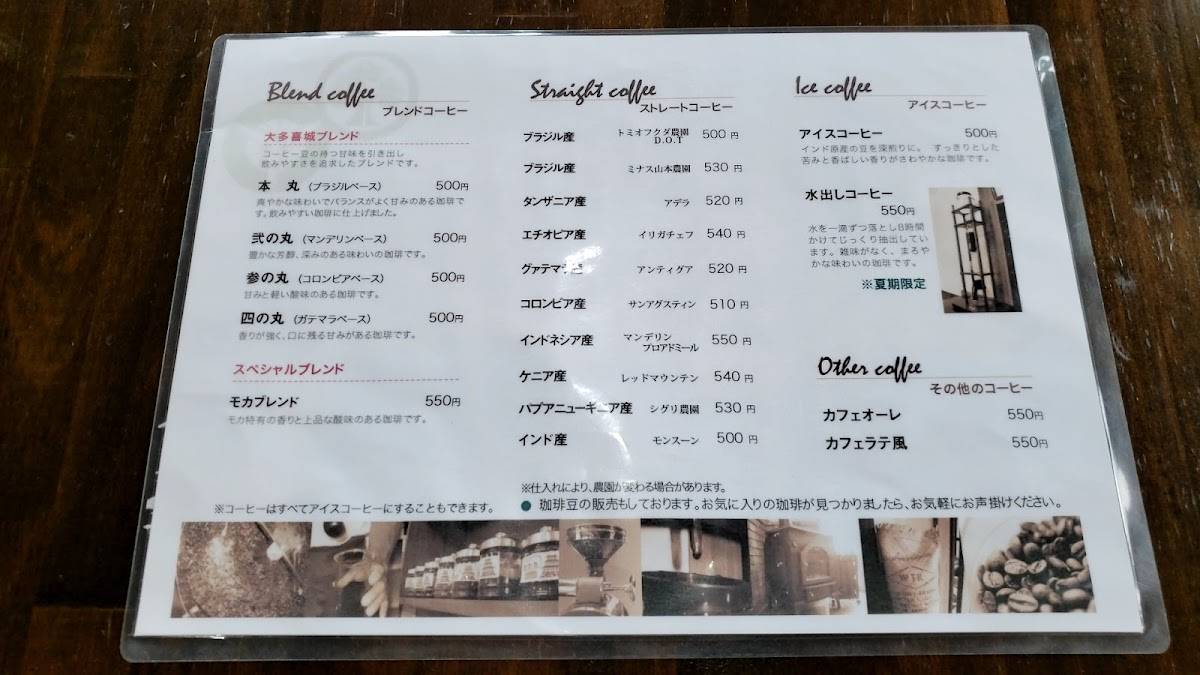 Blend coffee
ブレンドコーヒー
大多喜城ブレンド
コーヒー豆の持つ甘味を引き出し
飲みやすさを追求したブレンドです。
本 丸 (ブラジルベース) 500円
爽やかな味わいでバランスがよく甘みのある珈琲で
す。飲みやすい珈琲に仕上げました。
弐の丸 (マンデリンベース) 500円
豊かな芳醇、深みのある味わいの珈琲です。
参の丸 (コロンビアベース) 500円
甘みと軽い酸味のある珈琲です。
四の丸 (ガテマラベース) 500円
香りが強く、口に残る甘みがある珈琲です。
スペシャルブレンド
モカブレンド 550円
モカ特有の香りと上品な酸味のある珈琲です。
※コーヒーはすべてアイスコーヒーにすることもできます。
Straight coffee
ストレートコーヒー
ブラジル産 トミオフクダ農園 500 円
D.O.T
ブラジル産 ミナス山本農園 530 円
タンザニア産 アデラ 520 円
エチオピア産 イリガチェフ 540 円
グァテマラ産 アンティグア 520 円
コロンビア産 サンアグスティン 510 円
インドネシア産 マンデリン 550 円
ブロアドミール
ケニア産 レッドマウンテン 540 円
パプアニューギニア産 シグリ農園 530 円
インド産 モンスーン 500 円
※仕入れにより、農園が変わる場合があります。
● 珈琲豆の販売もしております。お気に入りの珈琲が見つかりましたら、お気軽にお声掛けください。
Ice coffee
アイスコーヒー
アイスコーヒー 500円
インド原産の豆を深煎りに。 すっきりとした
苦みと香ばしい香りがさわやかな珈琲です。
水出しコーヒー
550円
水を一滴ずつ落とし8時間
かけてじっくり抽出してい
ます。雑味がなく、まろや
かな味わいの珈琲です。
※夏期限定
Other coffee
その他のコーヒー
カフェオーレ 550円
カフェラテ風 550円